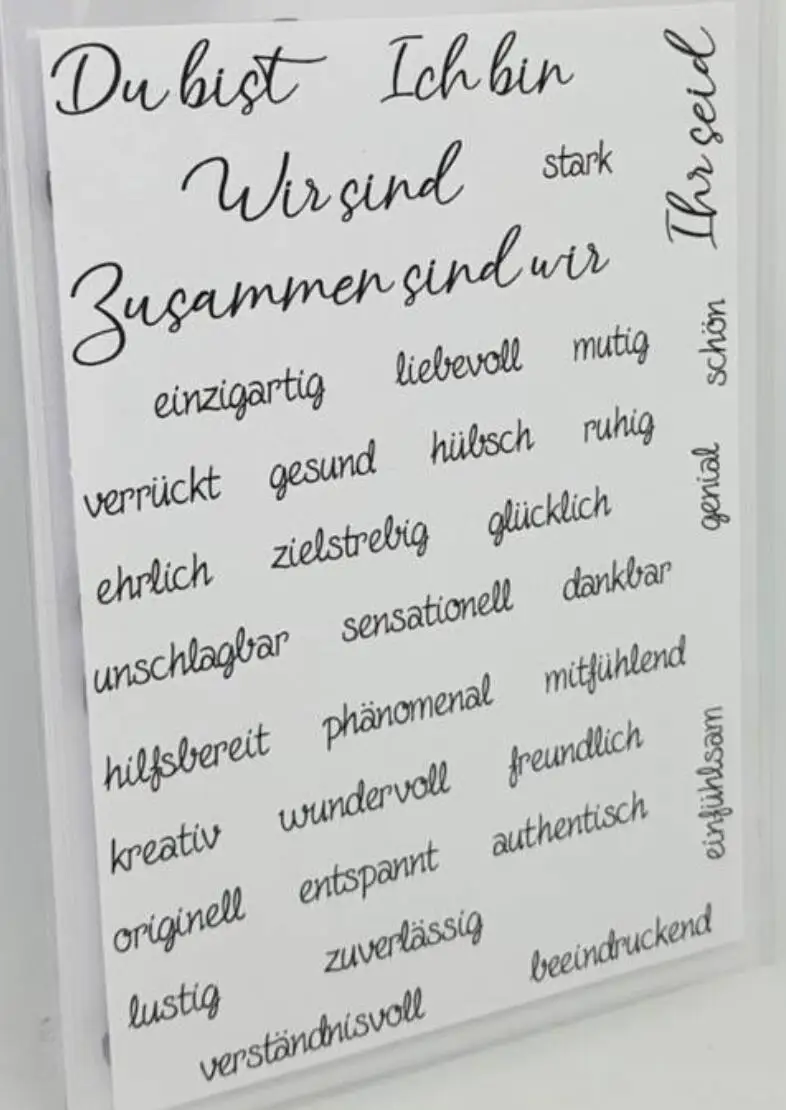 Du bist Ich bin
Wir sind stark
Ihr seid
Zusammen sind wir
einzigartig liebevoll mutig
schön
verrückt gesund hübsch ruhig
genial
ehrlich zielstrebig glücklich
unschlagbar sensationell dankbar
hilfsbereit phänomenal mitfühlend
kreativ wundervoll freundlich
einfühlsam
originell entspannt authentisch
lustig zuverlässig beeindruckend
verständnisvoll